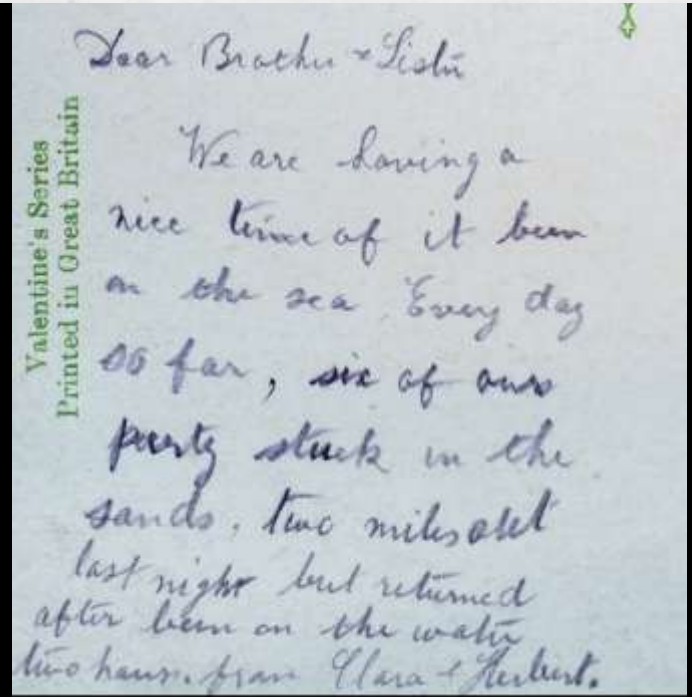 Valentine's Series
Printed in Great Britain
Dear Brother & Sister
We are having a
nice time of it been
on the sea Every day
so far, six of ours
party stuck in the
sands, two miles out
last night but returned
after been on the water
two hours. from Clara & Herbert.